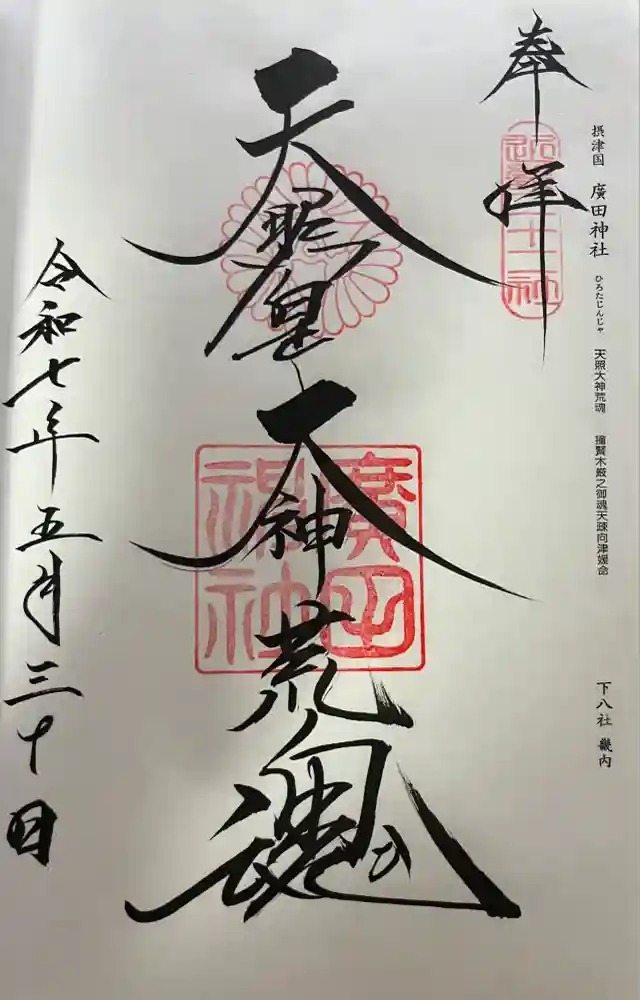 摂津国 廣田神社 ひろたじんじゃ 天照大神荒魂 撞賢木厳之御魂天疎向津媛命 下八社 畿内
奉拝
二十二社
天照皇大神荒魂
廣田
神社
令和七年五月三十日